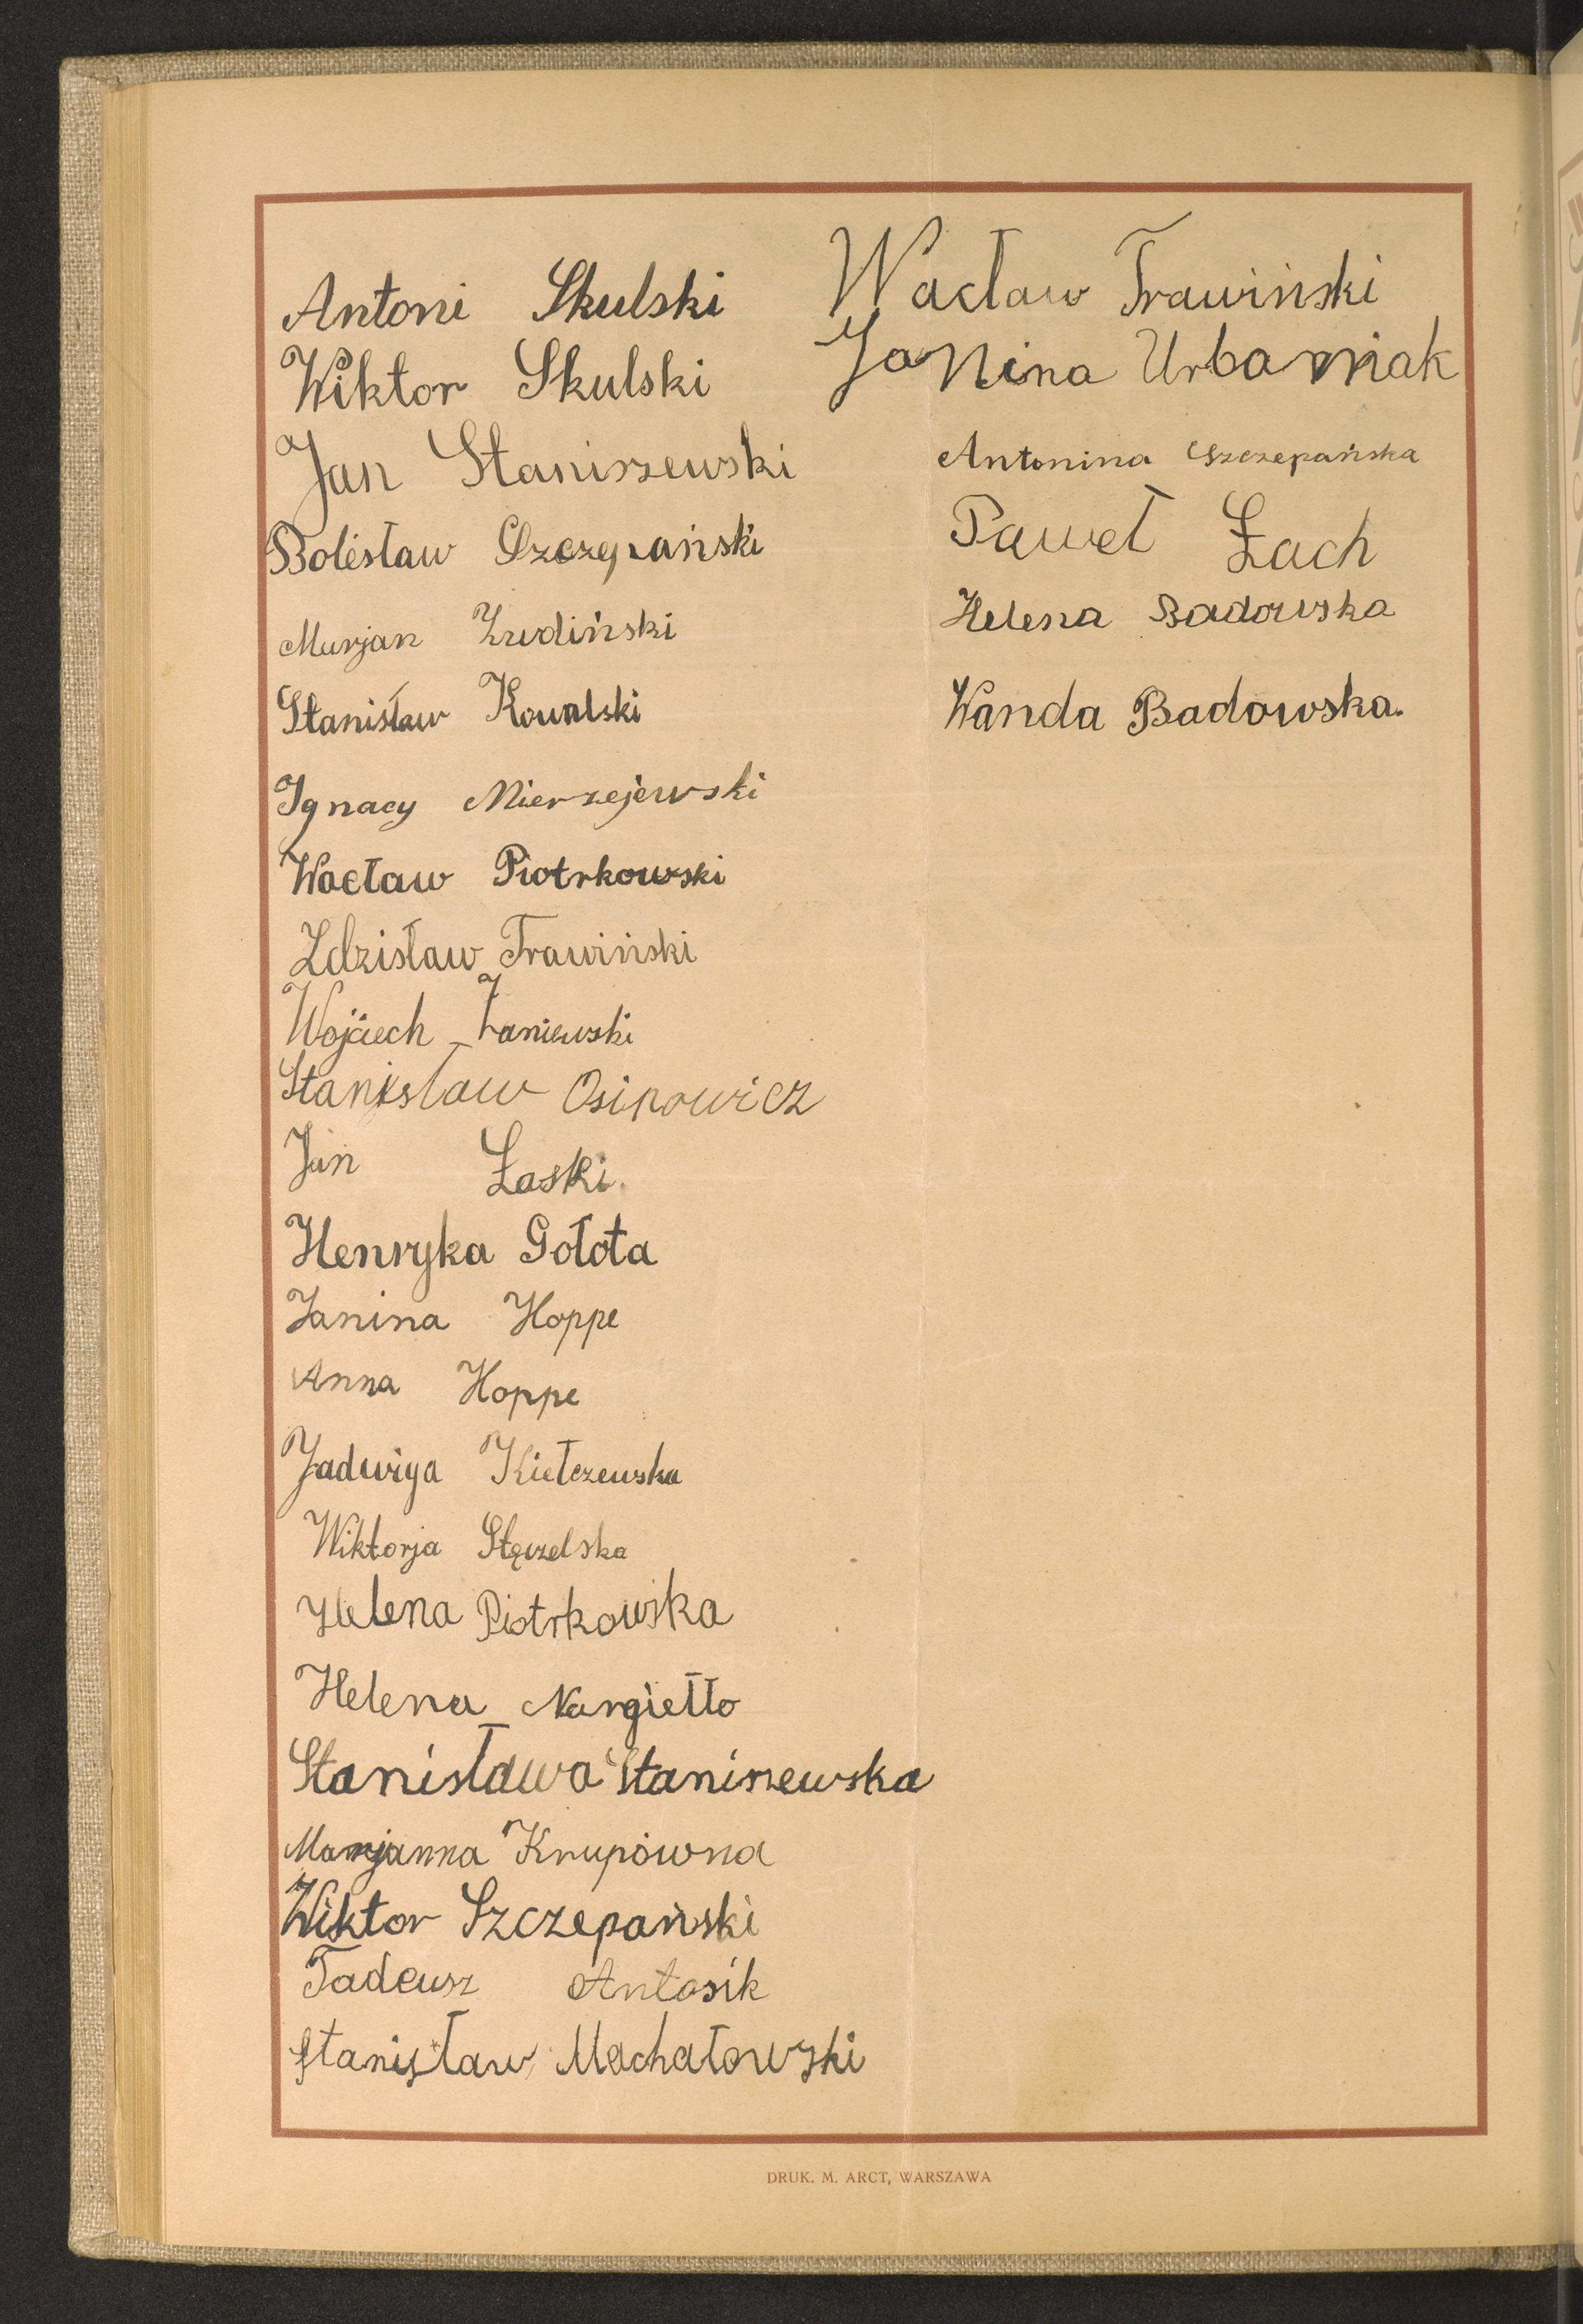 Antoni Skulski
Wiktor Skulski
Jan Staniszewski
Bolesław Szczepański
Marjan Zwoliński
Stanisław Kowalski
Ignacy Mierzejewski
Wacław Piotrkowski
Zdzisław Trawiński
Wojciech Żaniewski
Stanisław Osipowicz
Jan Łaski.
Henryka Gołota
Janina Hoppe
Anna Hoppe
Jadwiga Kiełczewska
Wiktorja
Helena Piotrkowska
Helena Nargiełło
Stanisława Staniszewska
Marjanna Krupówna
Wiktor Szczepański
Tadeusz Antosik
Stanisław Machałowski
Wacław Trawiński
Janina Urbaniak
Antonina Szczepańska
Paweł Łach
Helena Badowska
Wanda Badowska.
DRUK. M. ARCT, WARSZAWA